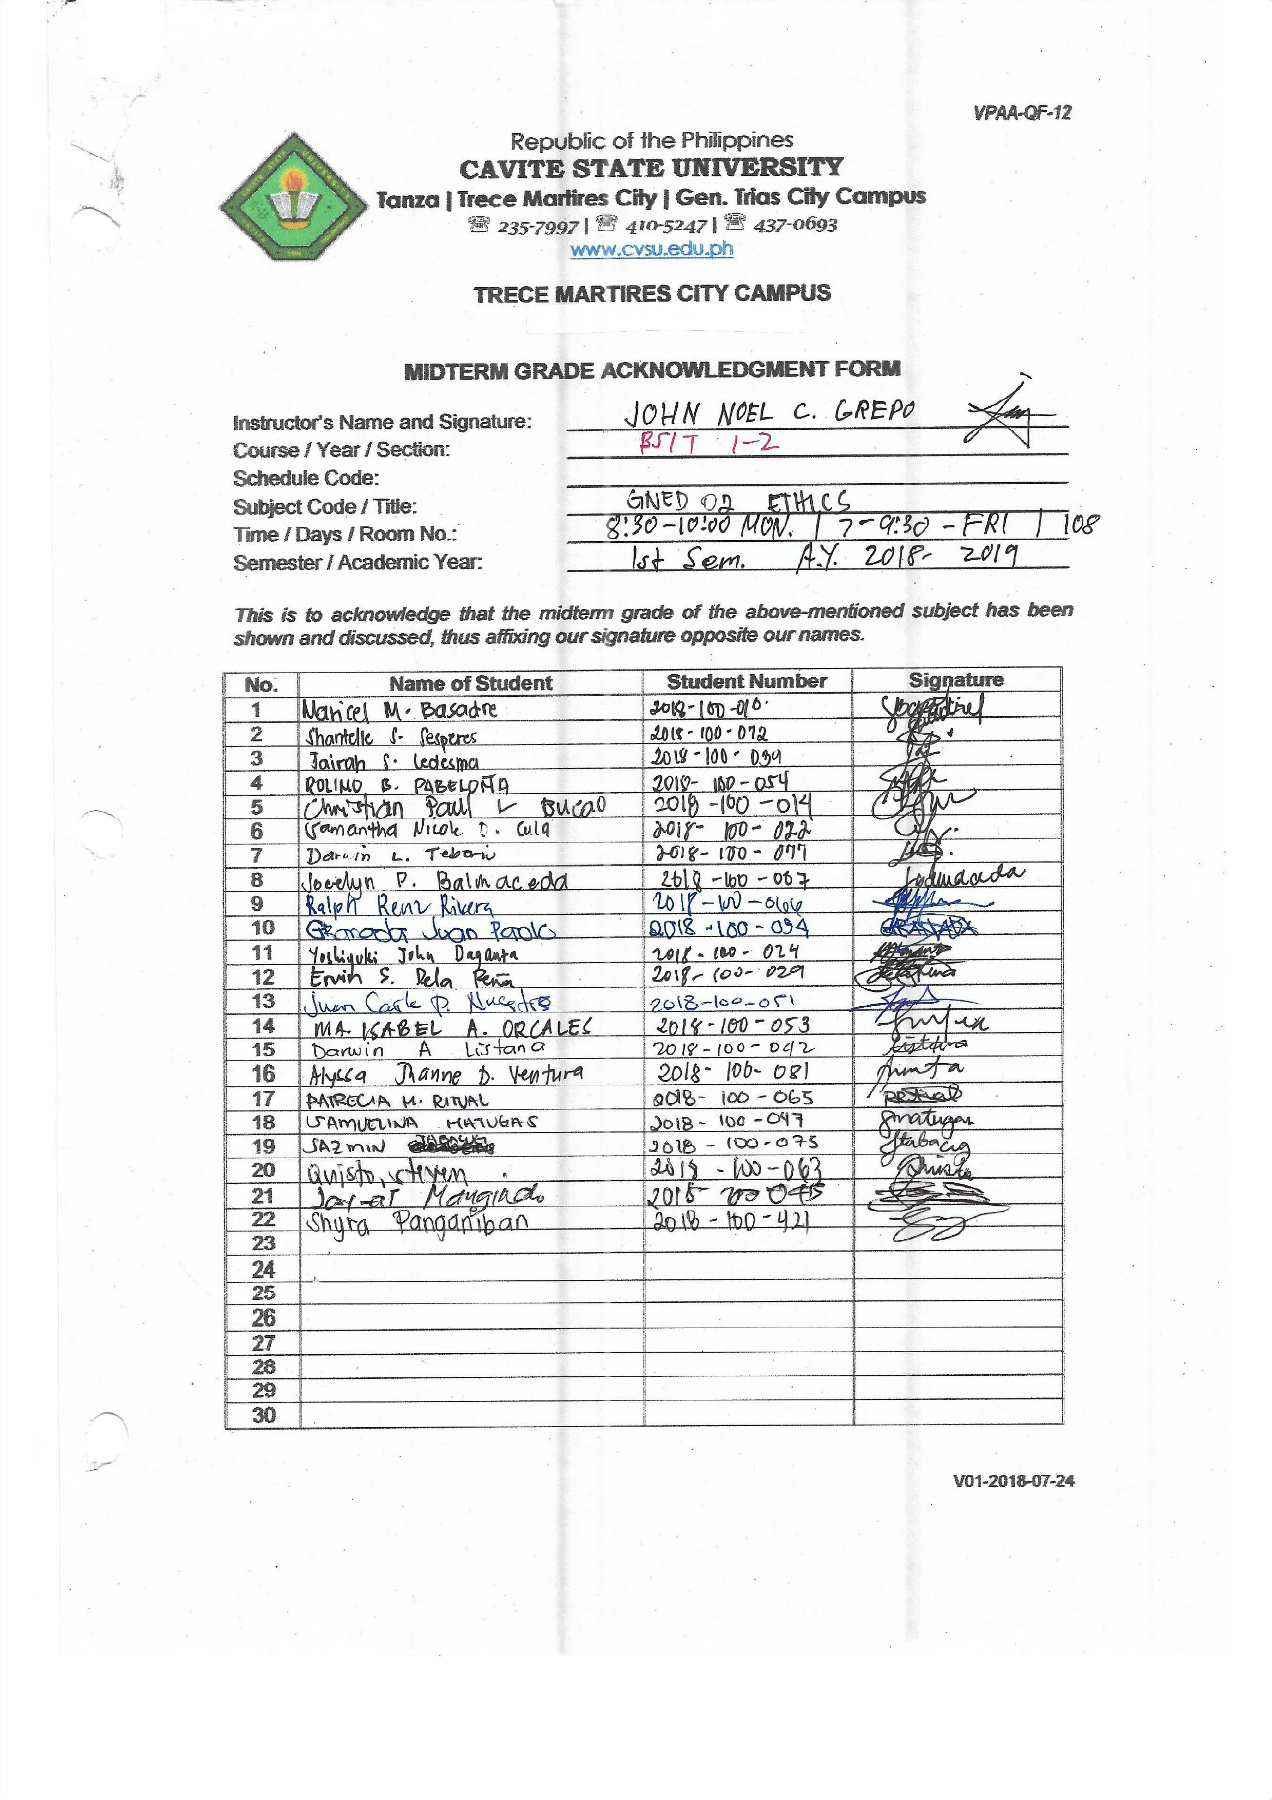 VPAA-QF-12
Republic of the Philippines
CAVITE STATE UNIVERSITY
Tanza | Trece Martires City | Gen. Trias City Campus
☏ 235-7997 | ☏ 410-5247 | ☏ 437-0693
www.cvsu.edu.ph
TRECE MARTIRES CITY CAMPUS
MIDTERM GRADE ACKNOWLEDGMENT FORM
Instructor's Name and Signature: JOHN NOEL C. GREPO
Course / Year / Section: BSIT 1-2
Schedule Code:
Subject Code / Title: GNED 02 ETHICS
Time / Days / Room No.: 8:30-10:00 MON. | 7-9:30-FRI | 108
Semester / Academic Year: 1st Sem. A.Y. 2018-2019
This is to acknowledge that the midterm grade of the above-mentioned subject has been
shown and discussed, thus affixing our signature opposite our names.
No. Name of Student Student Number Signature
1 Maricel M. Basadre 2018-100-010
2 Shantelle S. Sesperes 2018-100-072
3 Jairah S. Ledesma 2018-100-039
4 ROLINO B. PABELOÑA 2018-100-054
5 Christian Paul L Bucao 2018-100-014
6 Samantha Nicole D. Cula 2018-100-022
7 Darwin L. 2018-100-077
8 Jocelyn P. Balmaceda 2018-100-007
9 Ralph Renz Rivera 2018-100-066
10 Granada Juan Paolo 2018-100-034 GRANADA
11 Yoshiyuki John Daganta 2018-100-024
12 Ervin S. Dela Peña 2018-100-029
13 Juan Carlo P. Nuestro 2018-100-051
14 MA. ISABEL A. ORCALES 2018-100-053
15 Darwin A Listana 2018-100-042
16 Alyssa Jhanne D. Ventura 2018-100-081
17 PATRECIA M. RITUAL 2018-100-065
18 SAMUELINA MATUGAS 2018-100-047 Smatugas
19 JAZMIN 2018-100-075
20 Quisto, Steven 2018-100-063 Quisto
21 Jay-ar Mangindo 2018-100 045
22 Shyra Panganiban 2018-100-421
23
24
25
26
27
28
29
30
V01-2018-07-24